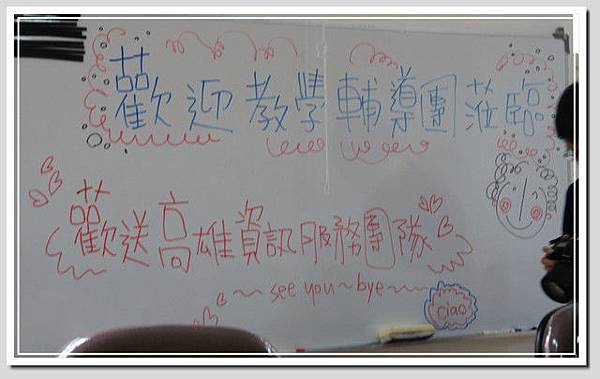 歡迎教學輔導團蒞臨
歡送高雄資訊服務團隊
～see you～bye～～
ciao